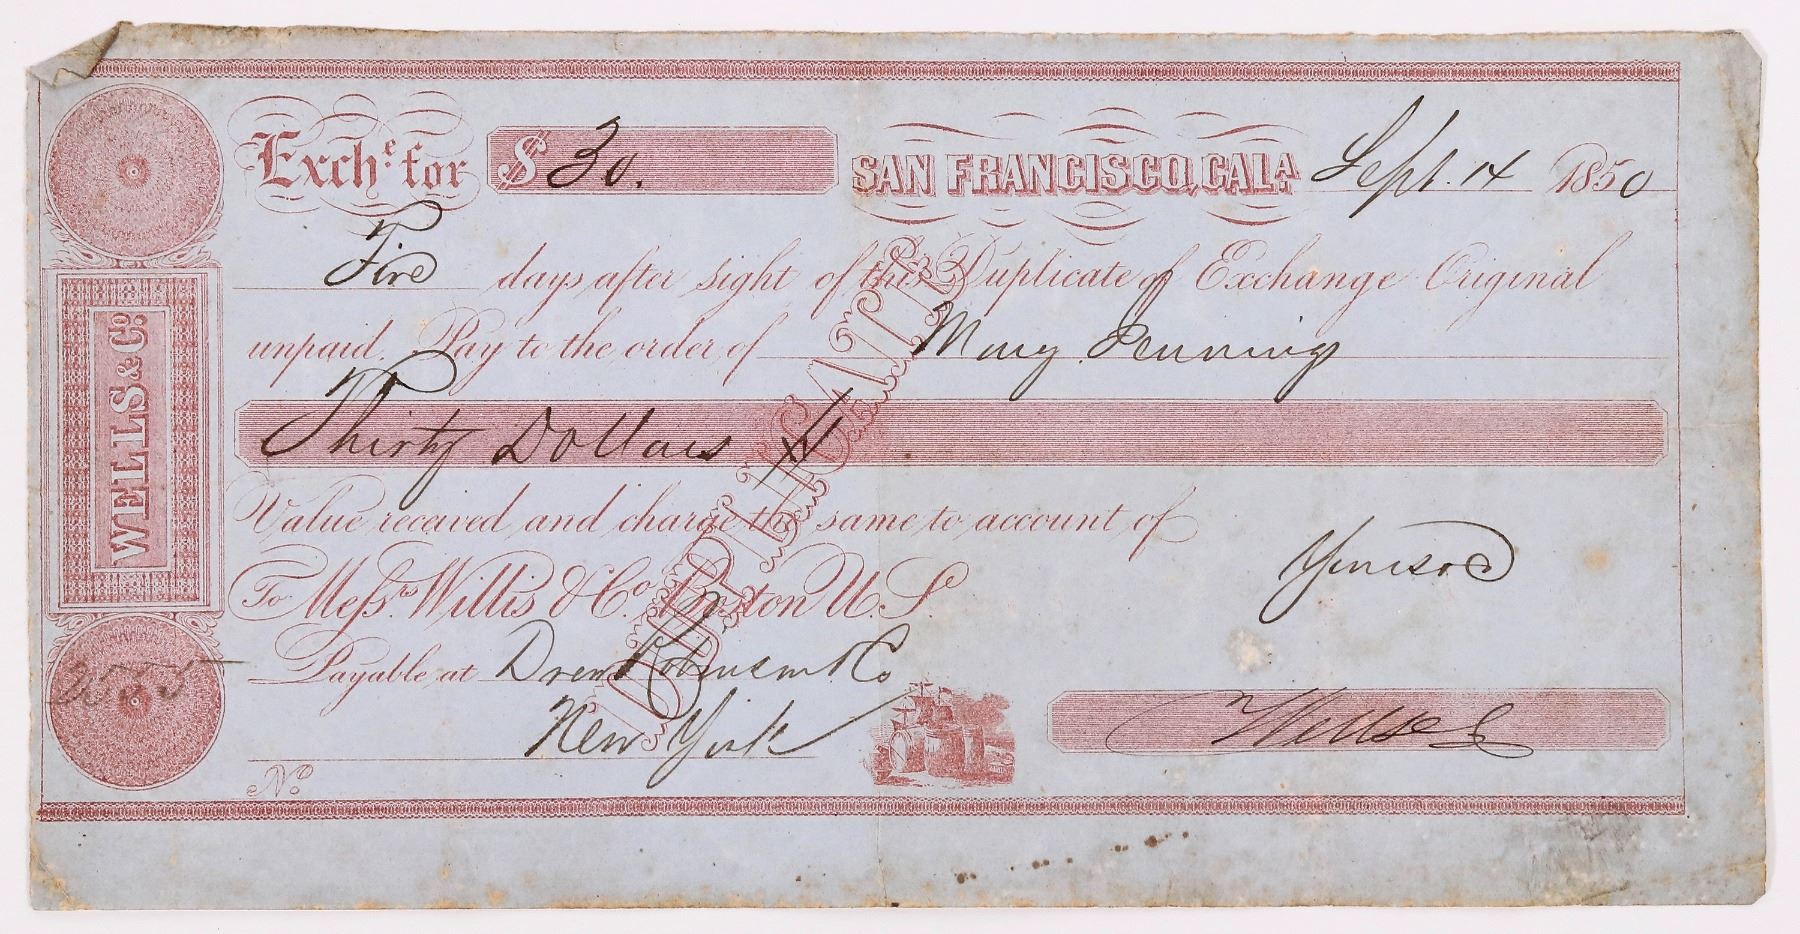 WELLS & Cº.
Exchᵉ for $ 30. SAN FRANCISCO, CALᴬ. Sept. 14 1850
Five days after sight of this Duplicate of Exchange Original
unpaid. Pay to the order of Mary Penning
Thirty Dollars
Value received and charge the same to account of
To Messʳˢ Willis & Cº Boston U.S.
Payable at Drew Robinson & Co
New York
Nº
Wells & Co
DUPLICATE